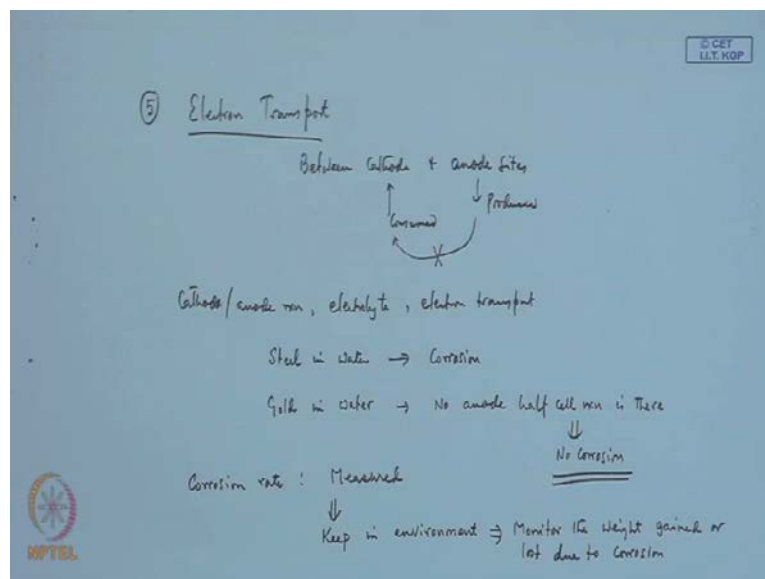 © CET
I.I.T. KGP
⑤ Electron Transport
Between Cathode & anode sites
Consumed
Produced
X
Cathode/anode rxn, electrolyte, electron transport
Steel in water → Corrosion
Gold in water → No anode half cell rxn is there
⇓
No Corrosion
Corrosion rate : Measured
⇓
Keep in environment ⇒ Monitor the weight gained or
lost due to corrosion
NPTEL